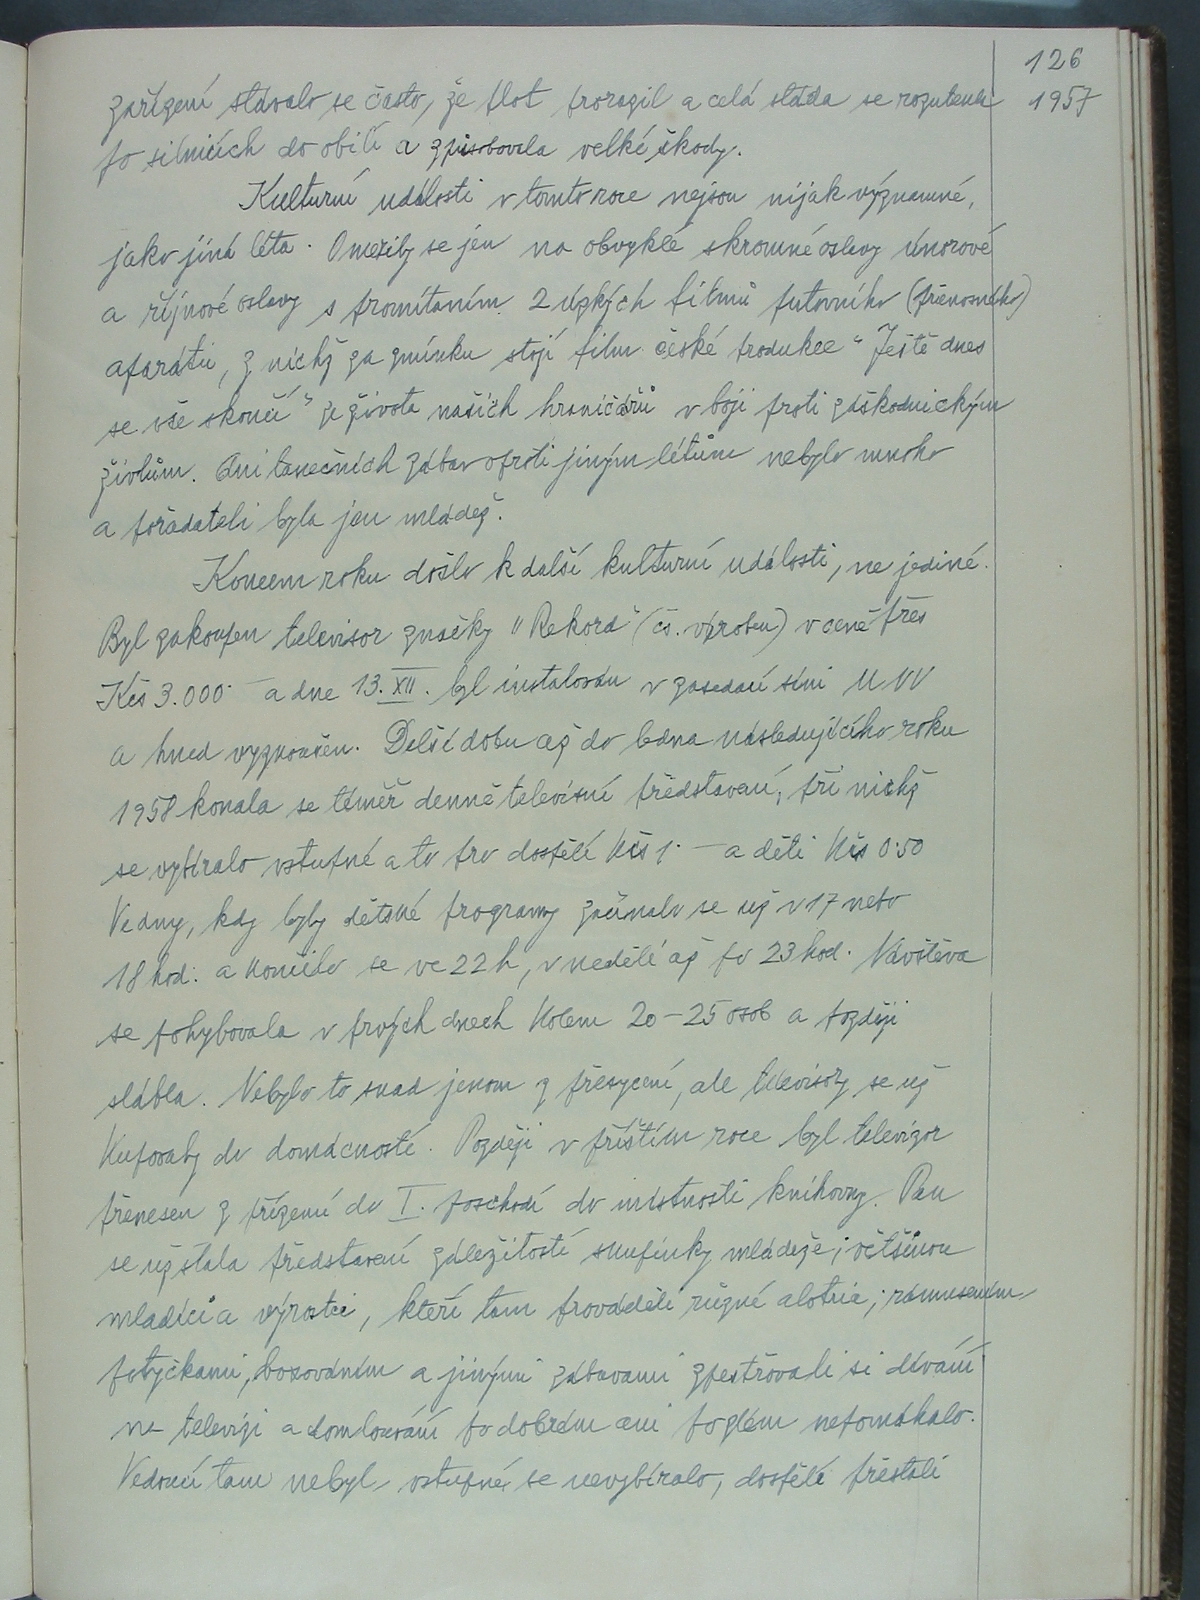 126
zařízení stávalo se často, že plot prorazil a celá stáda se rozutekla 1957
po silnicích do obilí a způsobovala velké škody.
Kulturní události v tomto roce nejsou nijak významné,
jako jiná léta. Omezily se jen na obvyklé skromné oslavy únorové
a říjnové oslavy s promítáním 2 úzkých filmů putovního (přenosného)
aparátu, z nichž za zmínku stojí film české produkce "Ještě dnes
se vše skončí" ze života našich hraničářů v boji proti záškodnickým
živlům. Ani tanečních zábav oproti jiným létům nebylo mnoho
a pořadateli byla jen mládež.
Koncem roku došlo k další kulturní události, ne jediné.
Byl zakoupen televisor značky "Rekord" (čs. výroben) v ceně přes
Kčs 3.000·— a dne 13. XII. byl instalován v zasedací síni MNV
a hned vyzkoušen. Delší dobu až do ledna následujícího roku
1958 konala se téměř denně televisní představení, při nichž
se vybíralo vstupné a to pro dospělé Kčs 1·— a děti Kčs 0·50
Ve dny, kdy byly dětské programy začínalo se už v 17 nebo
18 hod. a končilo se ve 22 h, v neděli až po 23 hod. Návštěva
se pohybovala v prvých dnech kolem 20–25 osob a později
slábla. Nebylo to snad jenom z přesycení, ale televisory se už
kupovaly do domácností. Později v příštím roce byl televizor
přenesen z přízemí do I. poschodí do místnosti knihovny. Pak
se už stala představení záležitostí skupinky mládeže; většinou
mladíci a výrostci, kteří tam prováděli různé alotrie; rámusením
potyčkami, boxováním a jinými zábavami zpestřovali si dívání
na televizi a domlouvání po dobrém ani po zlém nepomáhalo.
Vedoucí tam nebyl, vstupné se nevybíralo, dospělí přestali